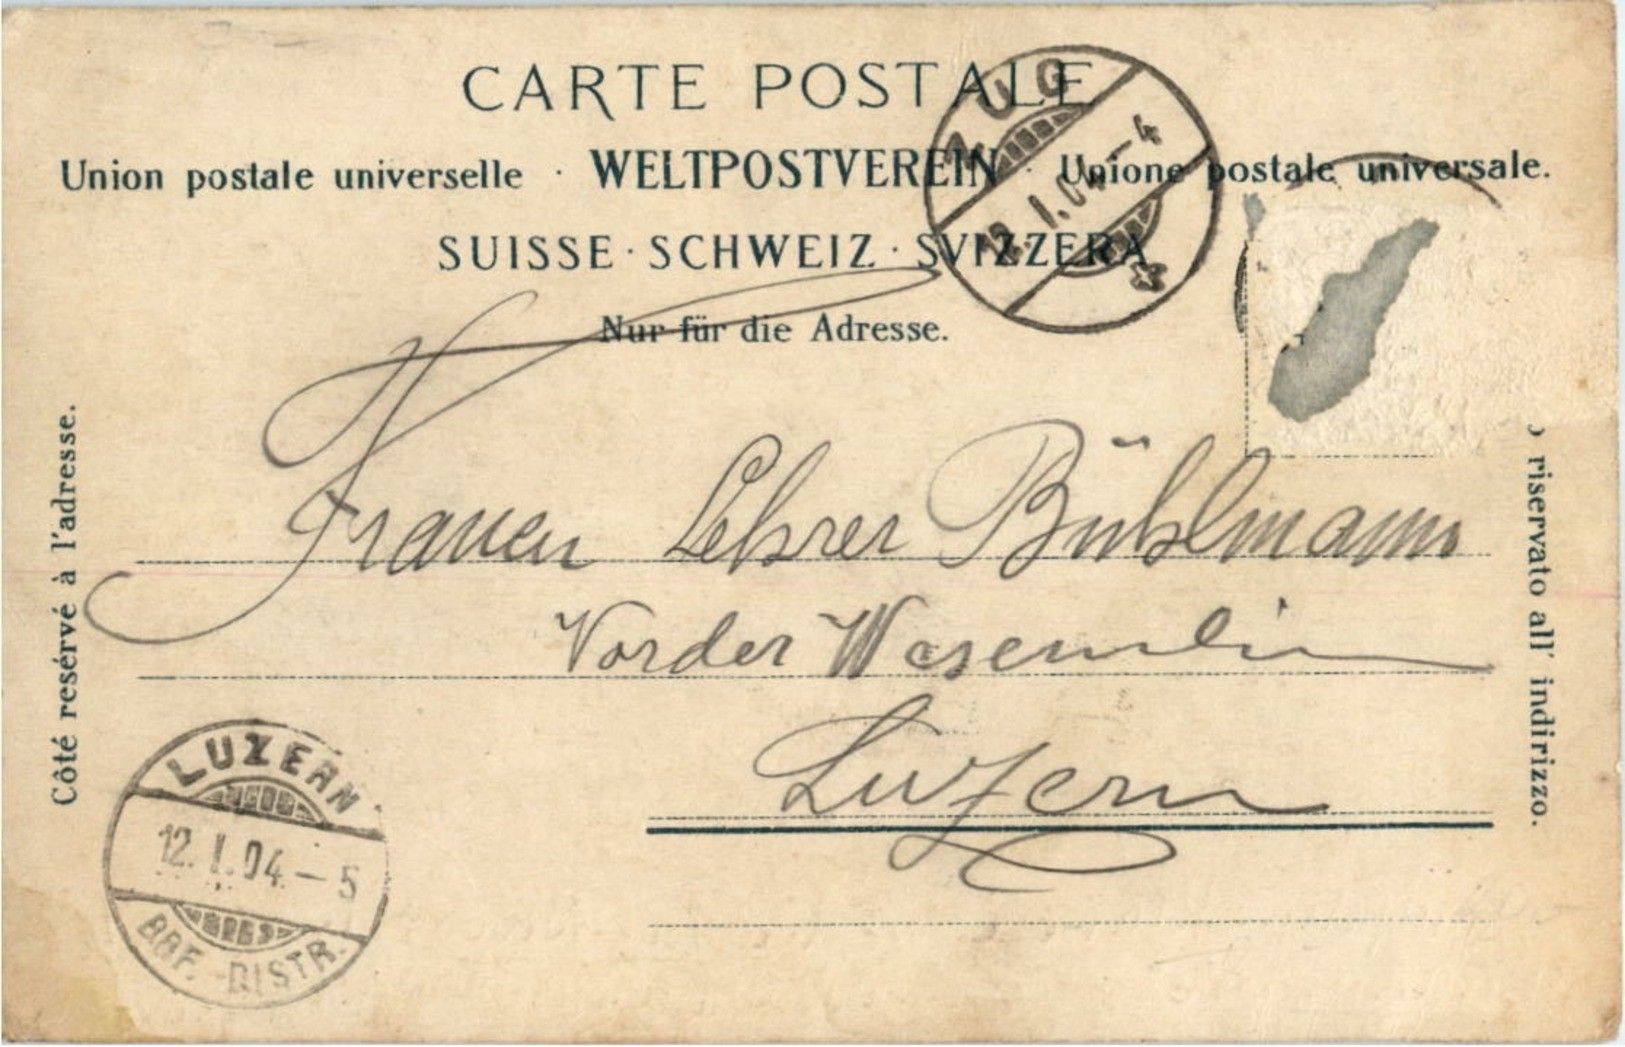 CARTE POSTALE
Union postale universelle · WELTPOSTVEREIN · Unione postale universale.
SUISSE · SCHWEIZ · SVIZZERA
Nur für die Adresse.
ZUG
12. I. 04 – 4
Côté resérvé à l'adresse.
o riservato all' indirizzo.
Frauen Lehrer Bühlmann
Vorder Wesemlin
Luzern
LUZERN
12. I. 04 – 5
BRF. DISTR.